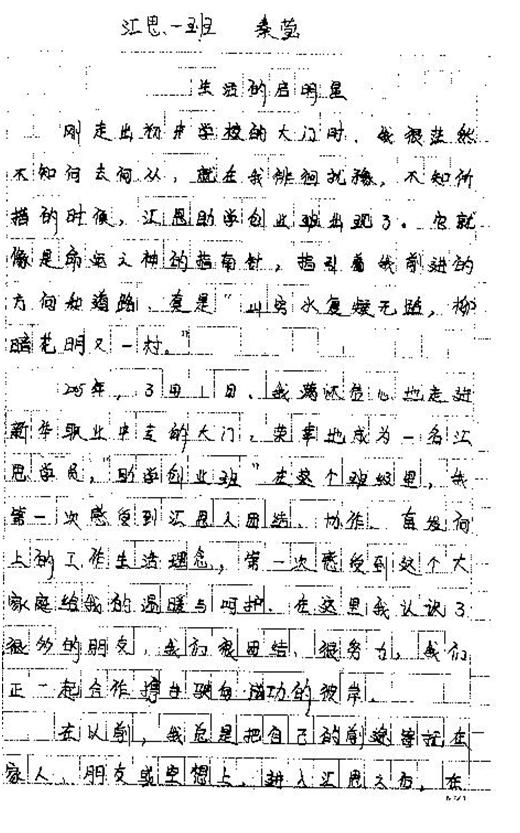 汇思一班 秦莹
生活的启明星
刚走出初中学校的大门时，我很茫然
不知何去何从，就在我徘徊犹豫，不知所
措的时候，汇思助学创业班出现了。它就
像是命运之神的指南针，指引着我前进的
方向和道路，真是“山穷水复疑无路，柳
暗花明又一村。”
年，3月1日，我满怀信心地走进
新华职业中专的大门，荣幸地成为一名汇
思学员，“助学创业班”在这个班级里，我
第一次感受到汇思人团结、协作、奋发向
上的工作生活理念，第一次感受到这个大
家庭给我的温暖与呵护。在这里我认识了
很多的朋友，我们很团结、很努力，我们
正一起合作撑着驶向成功的彼岸。
在以前，我总是把自己的前途寄托在
家人、朋友或空想上，进入汇思之后，在